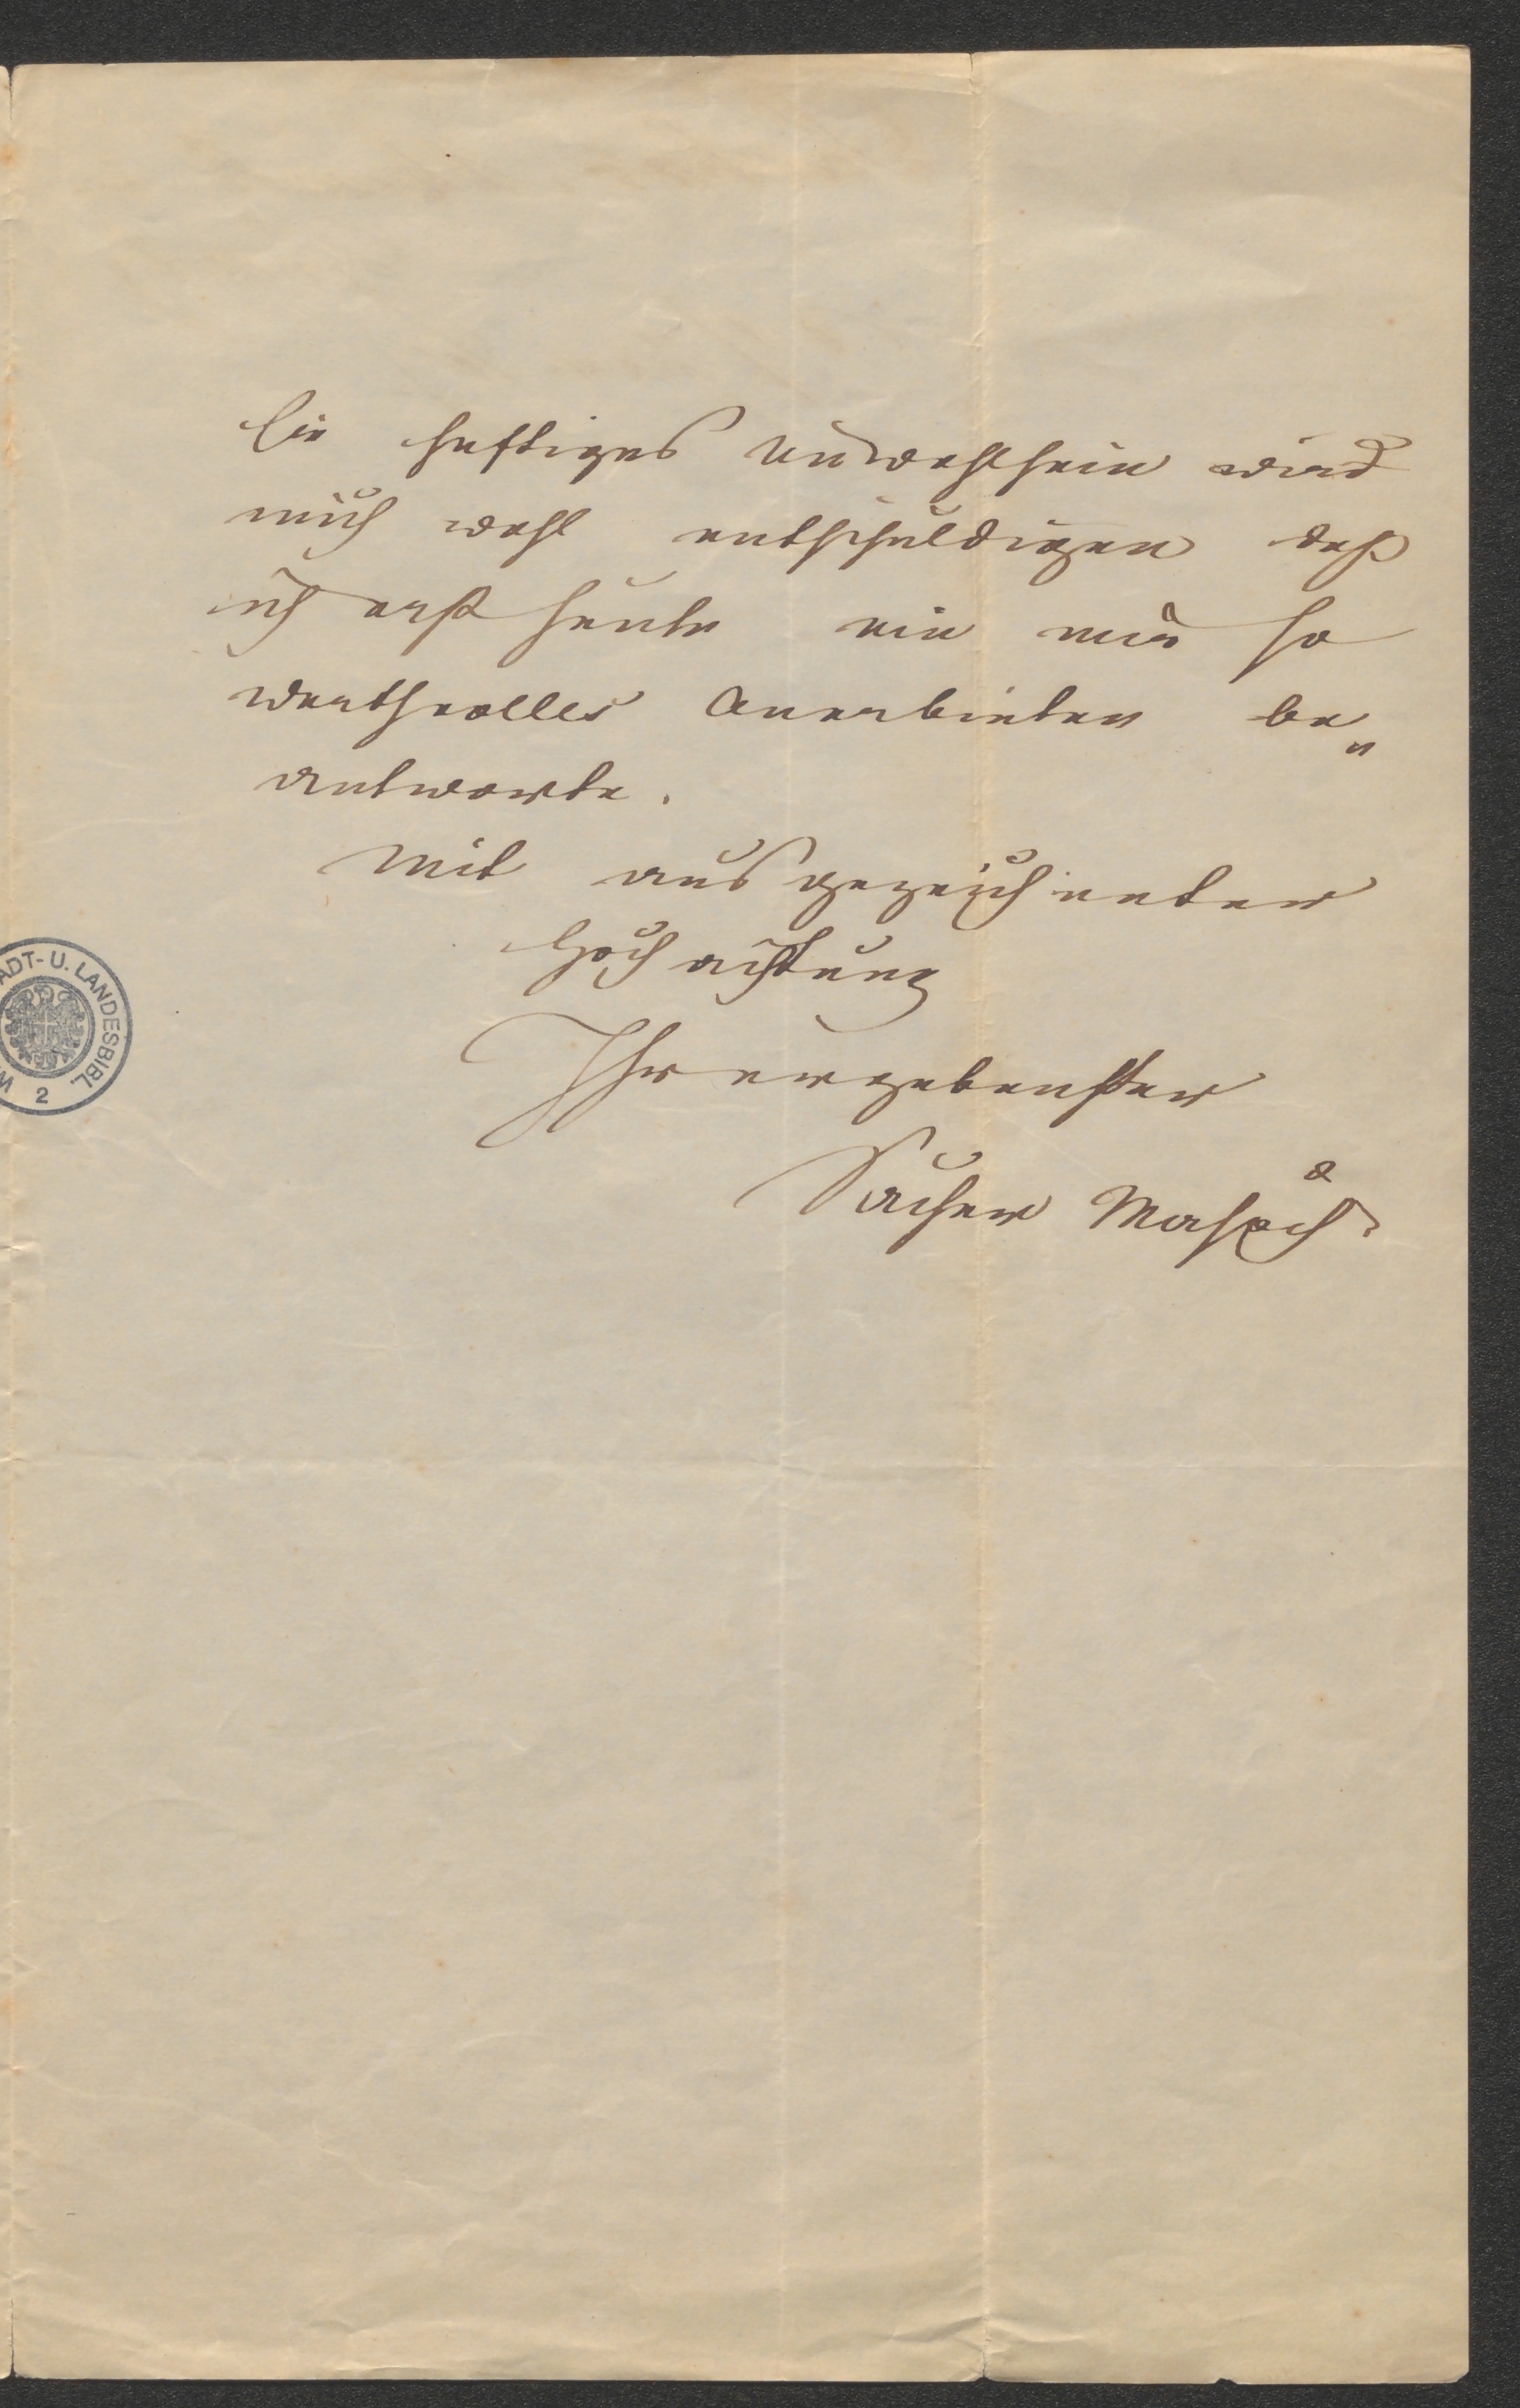 Ein heftiges Unwohlsein wird
mich wohl entschuldigen daß
ich erst heute ein mir so
werthvolles Anerbieten be„
antworte.
Mit ausgezeichneter
Hochachtung
Ihr ergebenster
Sacher Masoch
ADT- U. LANDESBIBL.
W
2